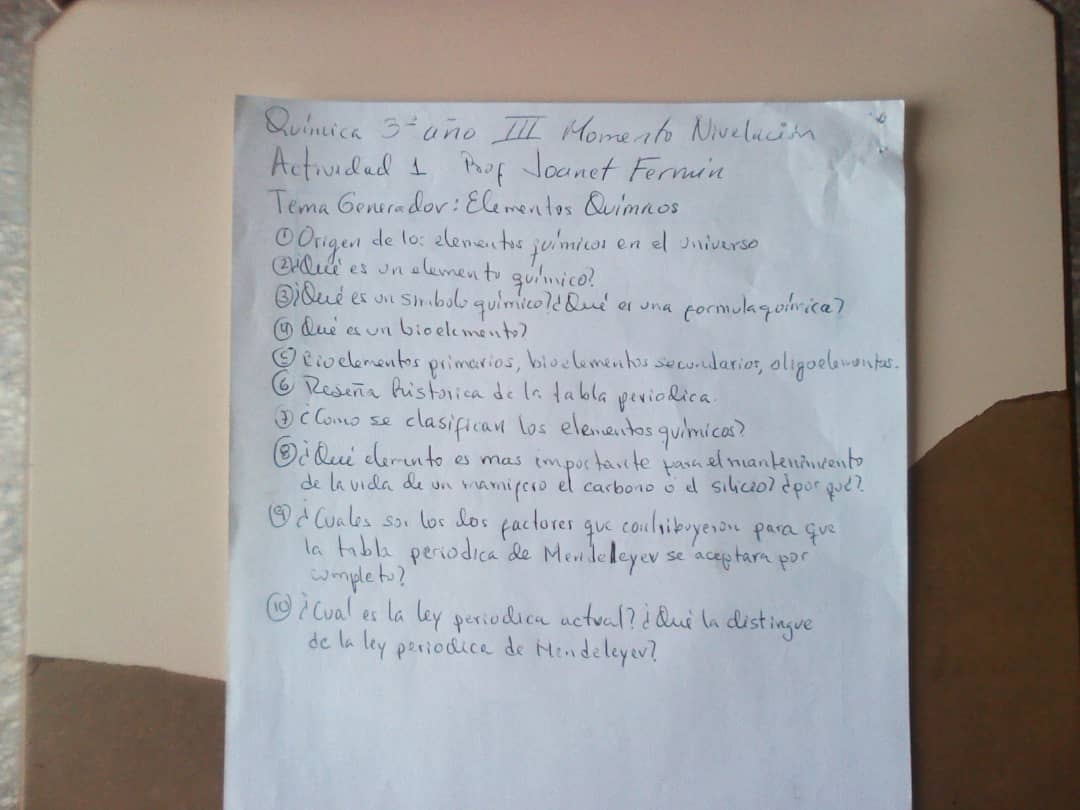 Química 3er año III Momento Nivelación
Actividad 1 Prof Joanet Fermin
Tema Generador: Elementos Químicos
① Origen de los elementos químicos en el universo
② ¿Qué es un elemento químico?
③ ¿Qué es un simbolo químico? ¿Qué es una formula química?
④ Que es un bioelemento?
⑤ Bioelementos primarios, bioelementos secundarios, oligoelementos.
⑥ Reseña historica de la tabla periodica.
⑦ ¿Como se clasifican los elementos químicos?
⑧ ¿Qué elemento es mas importante para el mantenimiento
de la vida de un mamifero el carbono o el silicio? ¿por qué?
⑨ ¿Cuales son los dos factores que contribuyeron para que
la tabla periodica de Mendeleyev se aceptara por
completo?
⑩ ¿Cual es la ley periodica actual? ¿Qué la distingue
de la ley periodica de Mendeleyev?